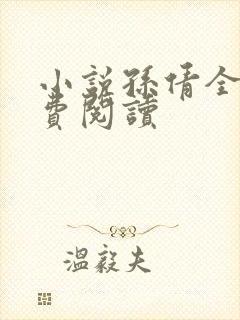 小説孫倩全
費閱讀
溫毅夫